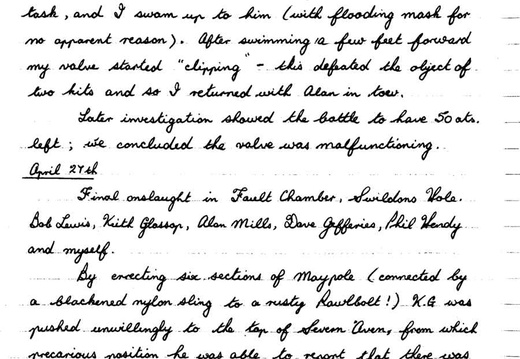 task, and I swam up to him (with flooding mask for
no apparent reason). After swimming a few feet forward
my valve started "clipping" - this defeated the object of
two kits and so I returned with Alan in tow.
Later investigation showed the bottle to have 50 ats.
left; we concluded the valve was malfunctioning.
April 27th
Final onslaught in Fault Chamber, Swildons Hole.
Bob Lewis, Kith Glossop, Alan Mills, Dave Gefferies, Phil Hendy
and myself.
By errecting six sections of Maypole (connected by
a blackened nylon sling to a rusty Rawlbolt!) K.G was
pushed unwillingly to the top of Seven Aven, from which
precarious position he was able to report that there was